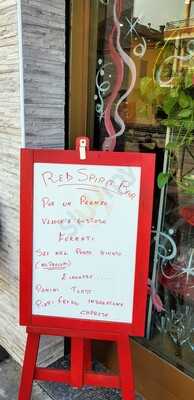 Red Spirit Bar
Per un Pranzo
Veloce e Gustoso
Sei nel Posto Giusto
Panini Toast
Piatti Freddi Insalatone
Caprese